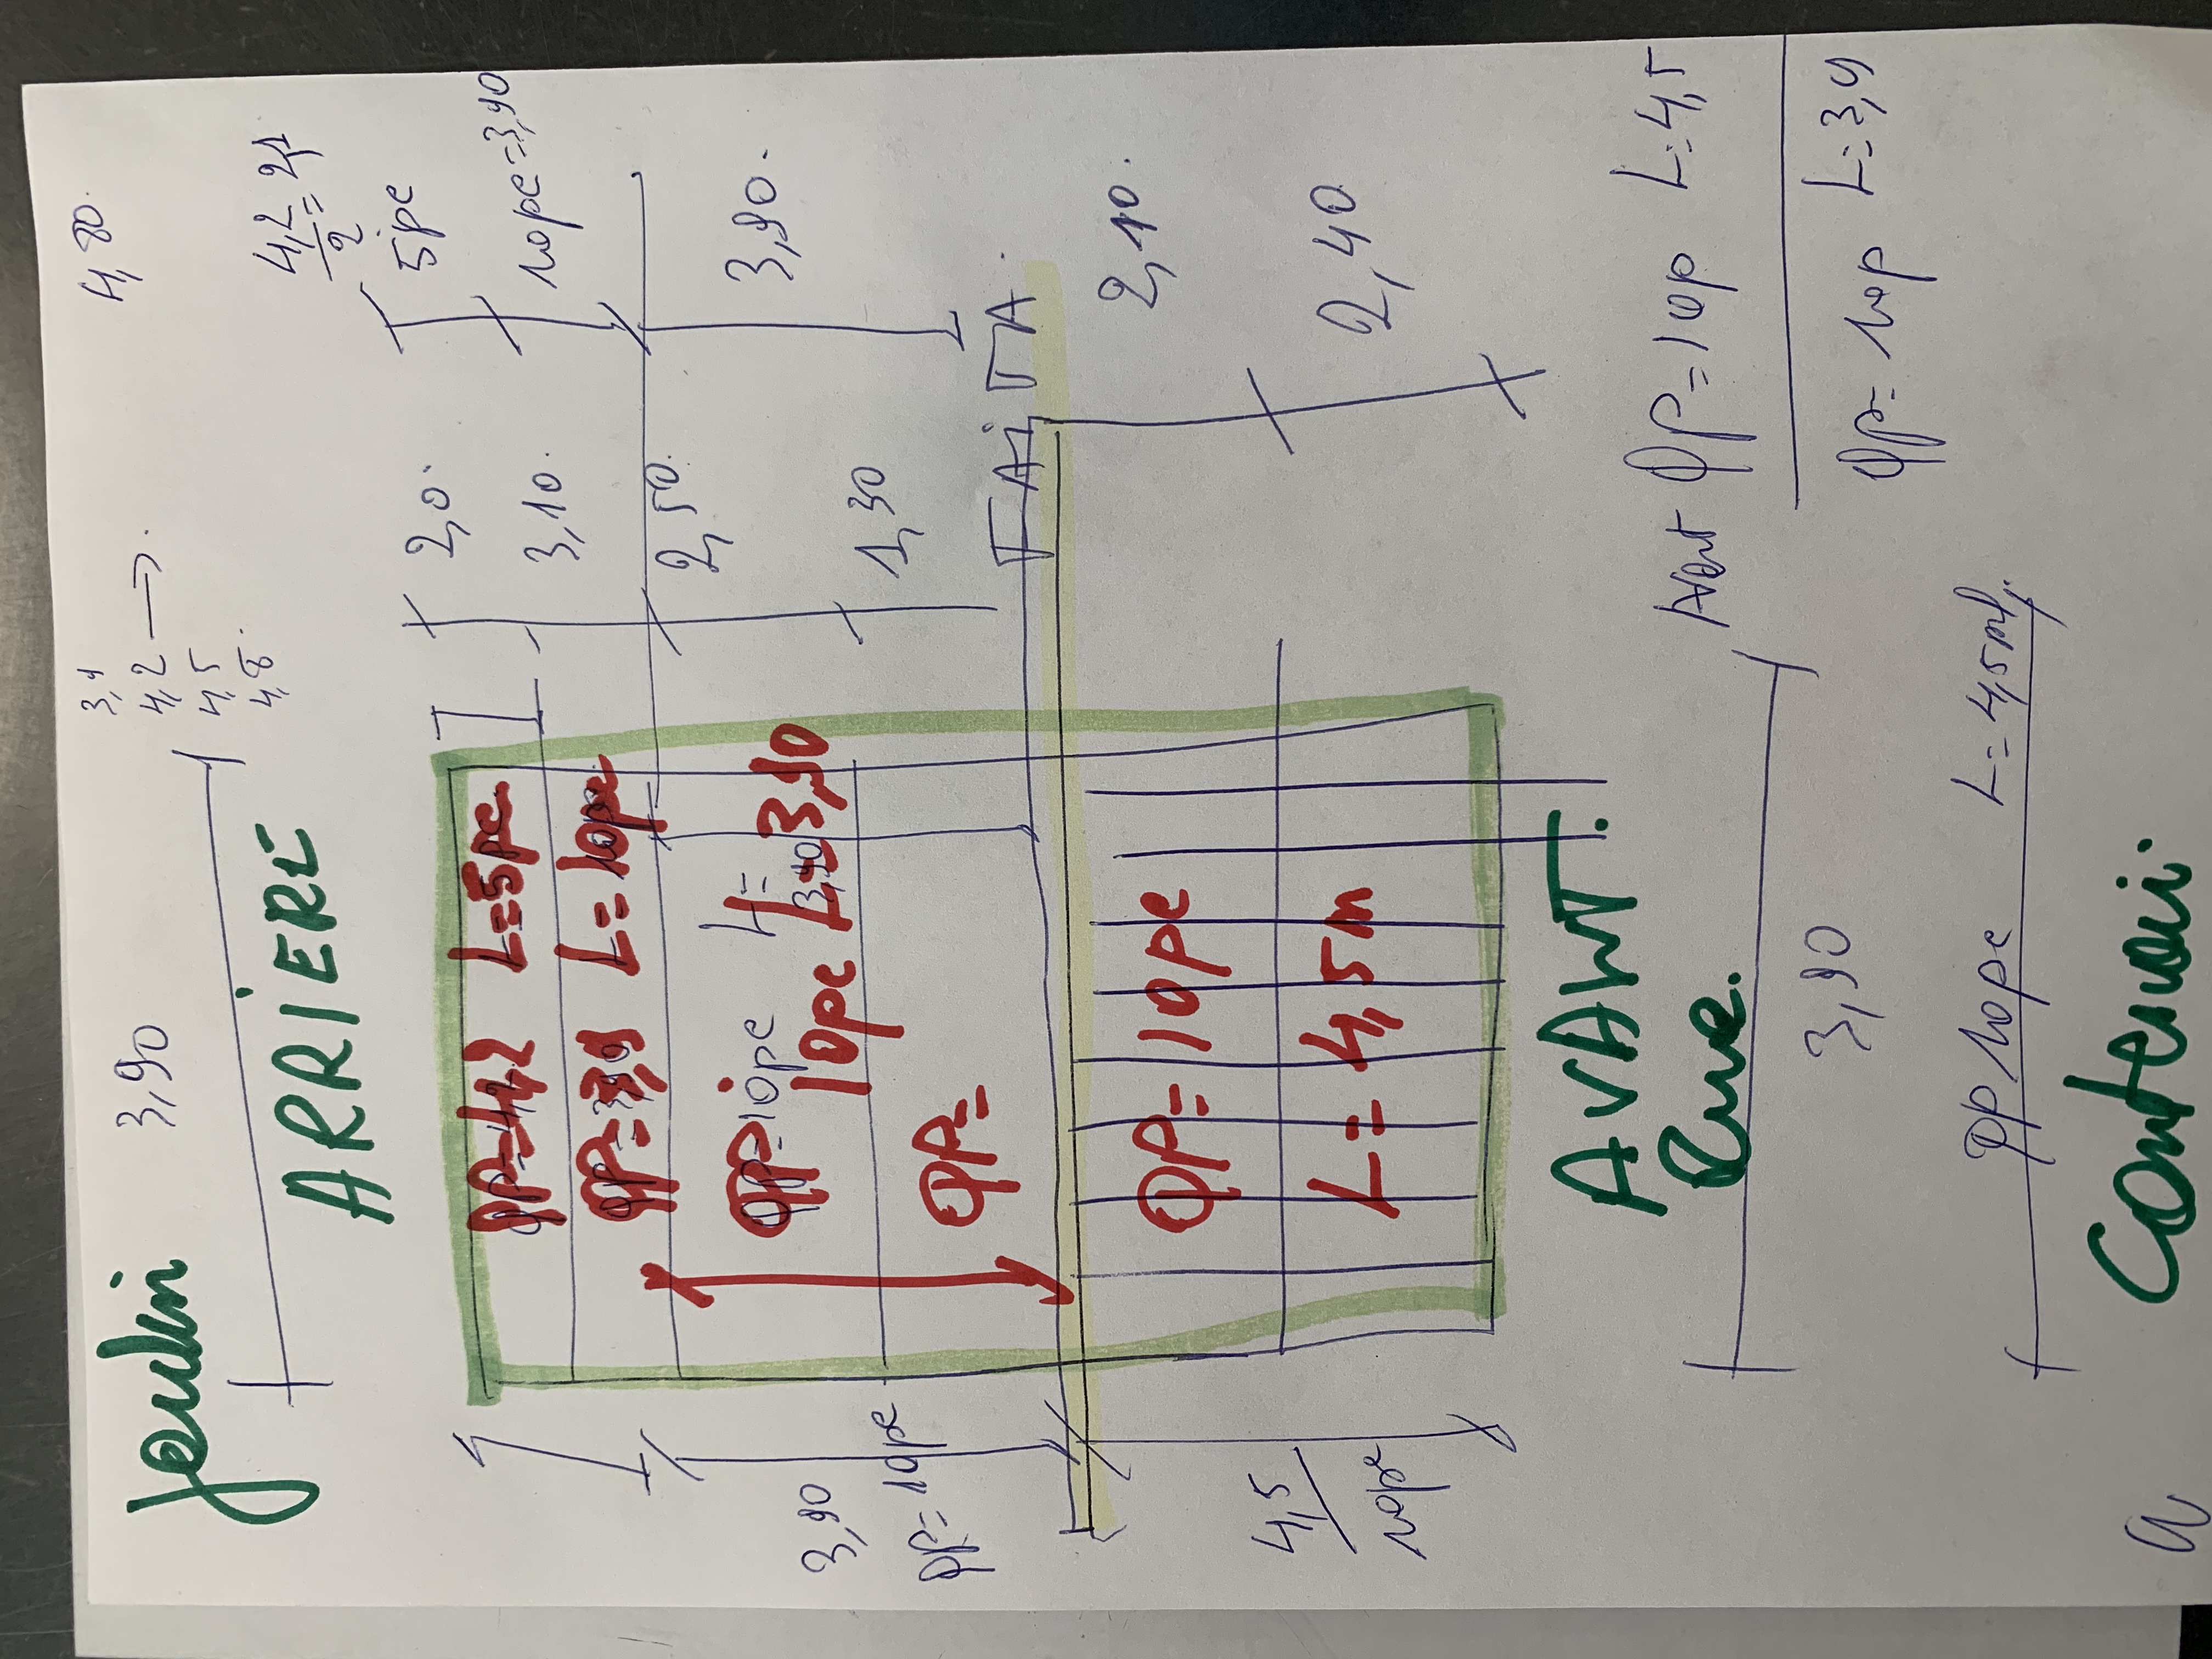 3,90
3,9
4,2
4,5
4,8.
4,80.
ARRIERE
4,2
2
= 2,1
2,0.
5pc
3,10.
10pc=3,90
2,50.
3,90.
1,30
QP=4,2 L=5pc
QP=3,9 L=10pc
QP=10pc L=
3,90
10pc L=3,90
QP=
3,90
QP=10pc
2,10.
2,40
QP=10pc
L=4,5m
4,5
10pc
AVANT.
Rue.
QP=10p L=4,5
QP=10p L=3,9
3,90
QP 10pc L=4,5m